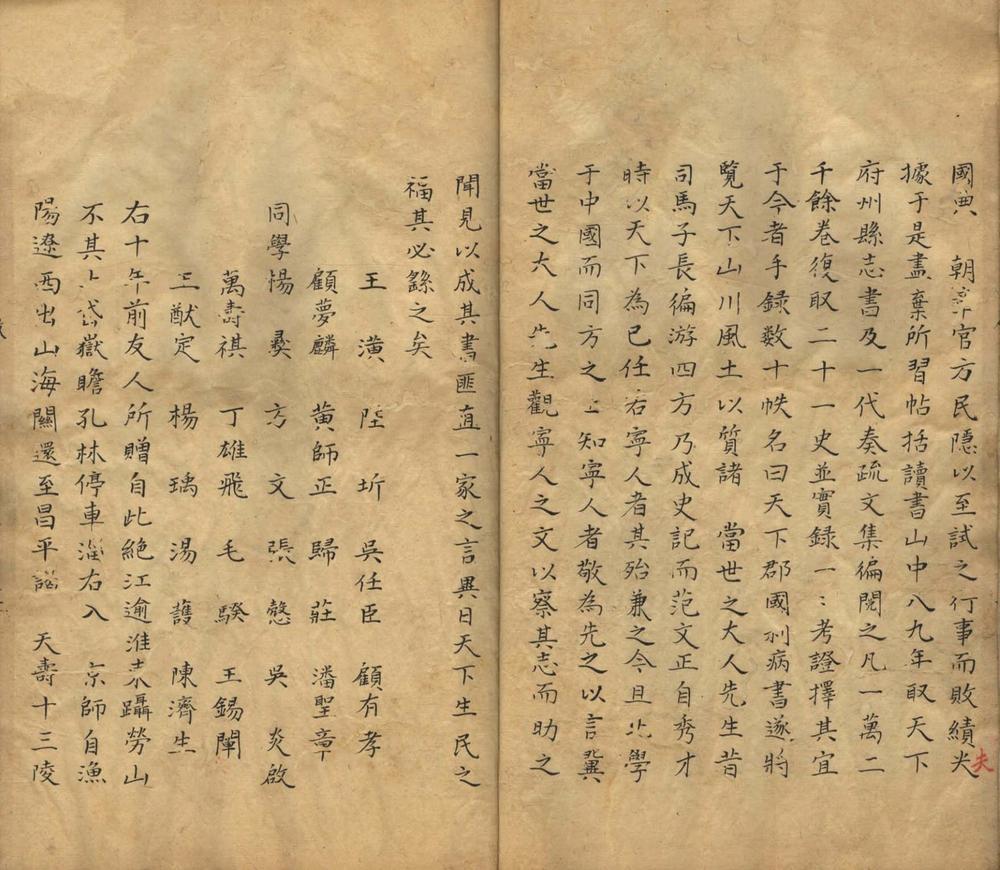 國典　朝章官方民隱以至試之行事而敗績失
夫
據于是盡棄所習帖括讀書山中八九年取天下
府州縣志書及一代奏疏文集徧閱之凡一萬二
千餘卷復取二十一史並實錄一ː考證擇其宜
于今者手錄数十帙名曰天下郡國利病書遂將
覽天下山川風土以質諸　當世之大人先生昔
司馬子長徧游四方乃成史記而范文正自秀才
時以天下為己任若寧人者其殆兼之今且北學
于中國而同方之士知寧人者敬為先之以言冀
當世之大人先生觀寧人之文以察其志而助之
聞見以成其書匪直一家之言異日天下生民之
福其必繇之矣
王　潢　陸　圻　吳任臣　顧有孝
顧夢麟　黃師正　歸　莊　潘聖章
同學楊　彝　方　文　張　愨　吳　炎啟
萬壽祺　丁雄飛　毛　騤　王錫闡
王猷定　楊　瑀　湯　護　陳濟生
右十年前友人所贈自此絕江逾淮東躡勞山
不其上岱嶽瞻孔林停車淄右入　京師自漁
陽遼西出山海關還至昌平謁　天壽十三陵